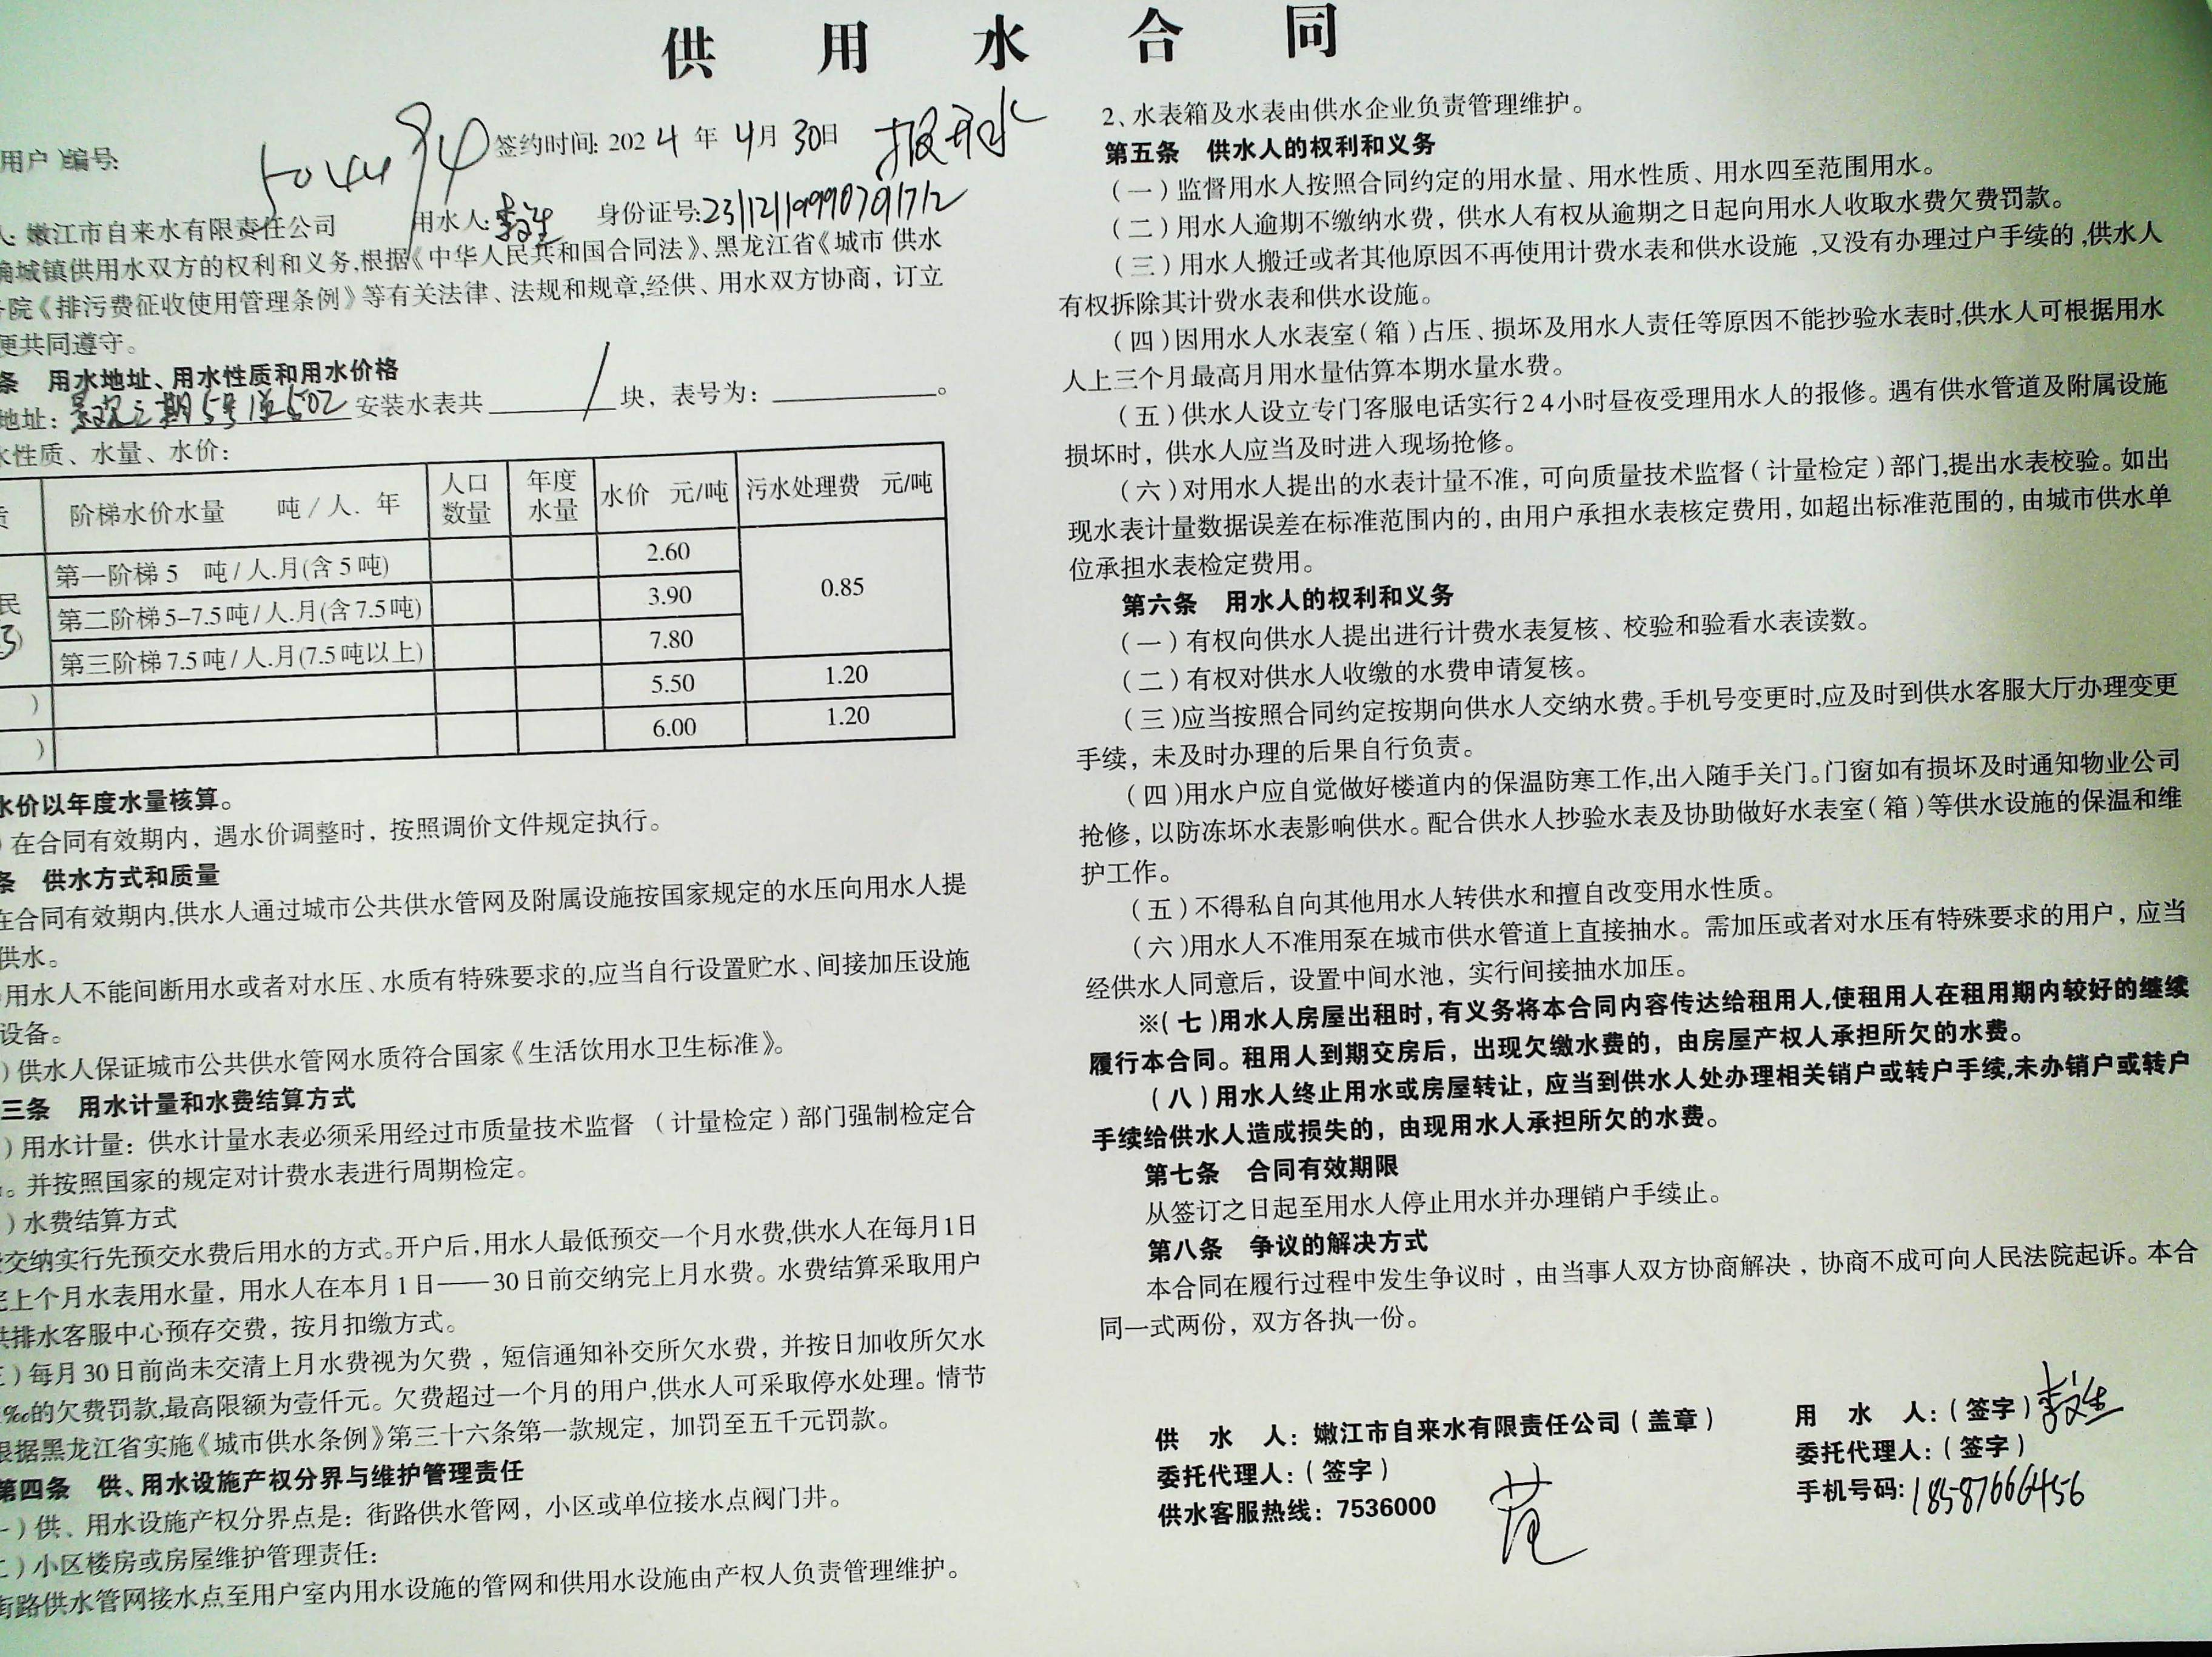 供 用 水 合 同
用户)编号: 504494 签约时间: 2024 年 4月 30日 报开水
人: 嫩江市自来水有限责任公司 用水人: 李文生 身份证号:
确城镇供用水双方的权利和义务,根据《中华人民共和国合同法》、黑龙江省《城市 供水
院《排污费征收使用管理条例》等有关法律、法规和规章,经供、用水双方协商，订立
便共同遵守。
条 用水地址、用水性质和用水价格
地址: 二期5号1单502 安装水表共 1 块，表号为: 。
水性质、水量、水价:
质 阶梯水价水量 吨/人. 年 人口数量 年度水量 水价 元/吨 污水处理费 元/吨
民 第一阶梯 5 吨/人.月(含 5 吨) 2.60 0.85
第二阶梯 5-7.5 吨/人.月(含 7.5 吨) 3.90
第三阶梯 7.5 吨/人.月(7.5 吨以上) 7.80
) 5.50 1.20
) 6.00 1.20
水价以年度水量核算。
)在合同有效期内，遇水价调整时，按照调价文件规定执行。
条 供水方式和质量
在合同有效期内,供水人通过城市公共供水管网及附属设施按国家规定的水压向用水人提
供水。
用水人不能间断用水或者对水压、水质有特殊要求的,应当自行设置贮水、间接加压设施
设备。
)供水人保证城市公共供水管网水质符合国家《生活饮用水卫生标准》。
三条 用水计量和水费结算方式
)用水计量：供水计量水表必须采用经过市质量技术监督 （计量检定）部门强制检定合
。并按照国家的规定对计费水表进行周期检定。
)水费结算方式
交纳实行先预交水费后用水的方式。开户后,用水人最低预交一个月水费,供水人在每月1日
完上个月水表用水量，用水人在本月 1 日——30 日前交纳完上月水费。水费结算采取用户
供排水客服中心预存交费，按月扣缴方式。
三)每月 30 日前尚未交清上月水费视为欠费，短信通知补交所欠水费，并按日加收所欠水
‰的欠费罚款,最高限额为壹仟元。欠费超过一个月的用户,供水人可采取停水处理。情节
根据黑龙江省实施《城市供水条例》第三十六条第一款规定，加罚至五千元罚款。
第四条 供、用水设施产权分界与维护管理责任
一)供、用水设施产权分界点是：街路供水管网，小区或单位接水点阀门井。
二)小区楼房或房屋维护管理责任:
街路供水管网接水点至用户室内用水设施的管网和供用水设施由产权人负责管理维护。
2、水表箱及水表由供水企业负责管理维护。
第五条 供水人的权利和义务
(一)监督用水人按照合同约定的用水量、用水性质、用水四至范围用水。
(二)用水人逾期不缴纳水费，供水人有权从逾期之日起向用水人收取水费欠费罚款。
(三)用水人搬迁或者其他原因不再使用计费水表和供水设施 ,又没有办理过户手续的 ,供水人
有权拆除其计费水表和供水设施。
(四)因用水人水表室(箱)占压、损坏及用水人责任等原因不能抄验水表时,供水人可根据用水
人上三个月最高月用水量估算本期水量水费。
(五)供水人设立专门客服电话实行24小时昼夜受理用水人的报修。遇有供水管道及附属设施
损坏时，供水人应当及时进入现场抢修。
(六)对用水人提出的水表计量不准，可向质量技术监督(计量检定)部门,提出水表校验。如出
现水表计量数据误差在标准范围内的，由用户承担水表核定费用，如超出标准范围的，由城市供水单
位承担水表检定费用。
第六条 用水人的权利和义务
(一)有权向供水人提出进行计费水表复核、校验和验看水表读数。
(二)有权对供水人收缴的水费申请复核。
(三)应当按照合同约定按期向供水人交纳水费。手机号变更时,应及时到供水客服大厅办理变更
手续，未及时办理的后果自行负责。
(四)用水户应自觉做好楼道内的保温防寒工作,出入随手关门。门窗如有损坏及时通知物业公司
抢修，以防冻坏水表影响供水。配合供水人抄验水表及协助做好水表室(箱)等供水设施的保温和维
护工作。
(五)不得私自向其他用水人转供水和擅自改变用水性质。
(六)用水人不准用泵在城市供水管道上直接抽水。需加压或者对水压有特殊要求的用户，应当
经供水人同意后，设置中间水池，实行间接抽水加压。
※(七)用水人房屋出租时,有义务将本合同内容传达给租用人,使租用人在租用期内较好的继续
履行本合同。租用人到期交房后，出现欠缴水费的，由房屋产权人承担所欠的水费。
(八)用水人终止用水或房屋转让，应当到供水人处办理相关销户或转户手续,未办销户或转户
手续给供水人造成损失的，由现用水人承担所欠的水费。
第七条 合同有效期限
从签订之日起至用水人停止用水并办理销户手续止。
第八条 争议的解决方式
本合同在履行过程中发生争议时，由当事人双方协商解决，协商不成可向人民法院起诉。本合
同一式两份，双方各执一份。
供 水 人：嫩江市自来水有限责任公司（盖章）
委托代理人:（签字）
供水客服热线：7536000
用 水 人:（签字）李文生
委托代理人:（签字）
手机号码: 18587666456